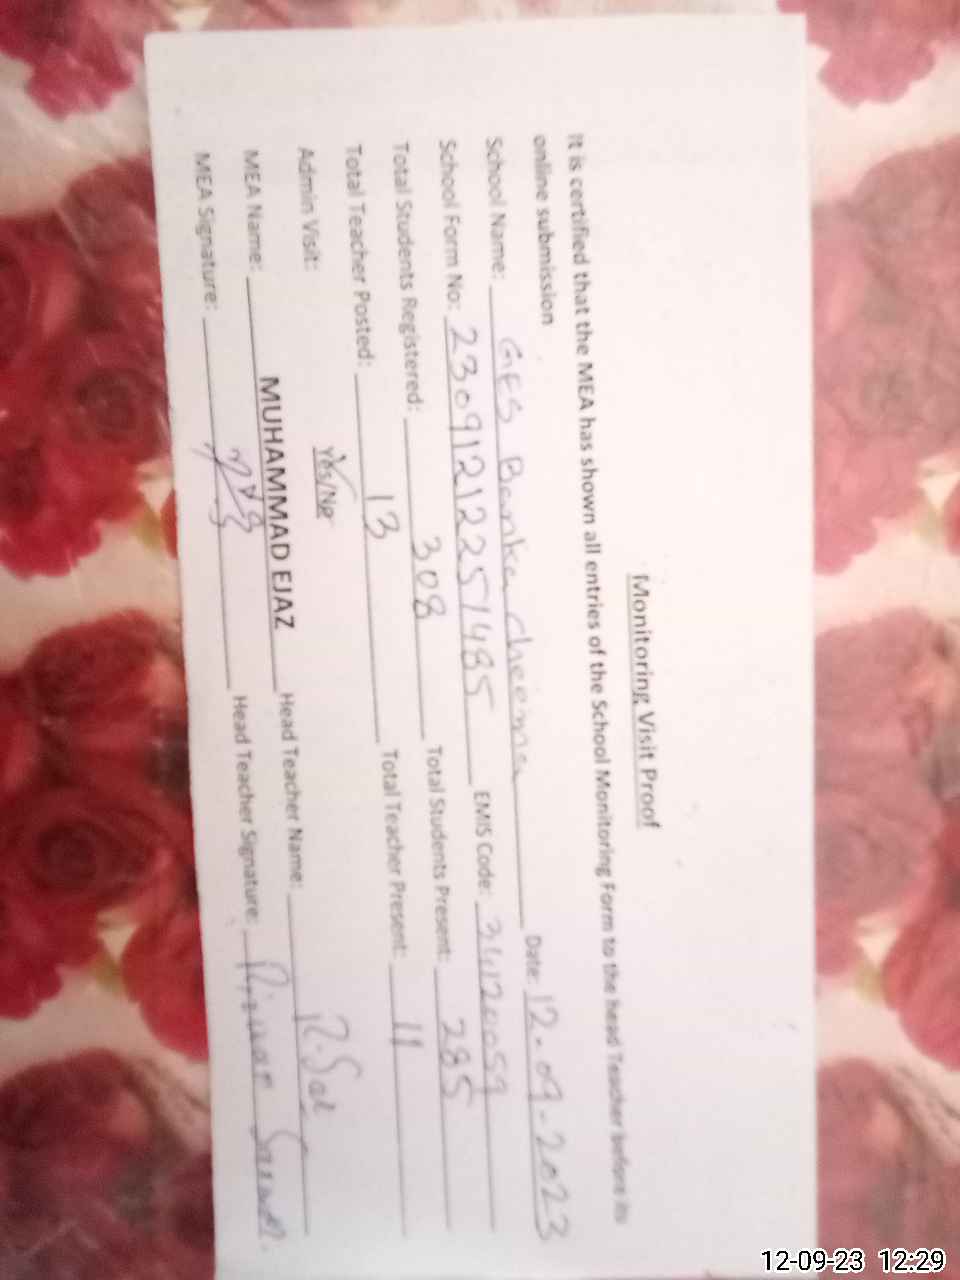 Monitoring Visit Proof
It is certified that the MEA has shown all entries of the School Monitoring Form to the head Teacher before its
online submission
School Name: GES Banka Cheema Date: 12-09-2023
School Form No: 23091212251485 EMIS Code: 34120059
Total Students Registered: 308 Total Students Present: 285
Total Teacher Posted: 13 Total Teacher Present: 11
Admin Visit: Yes/No
MEA Name: MUHAMMAD EJAZ Head Teacher Name:
MEA Signature: Head Teacher Signature:
12-09-23 12:29